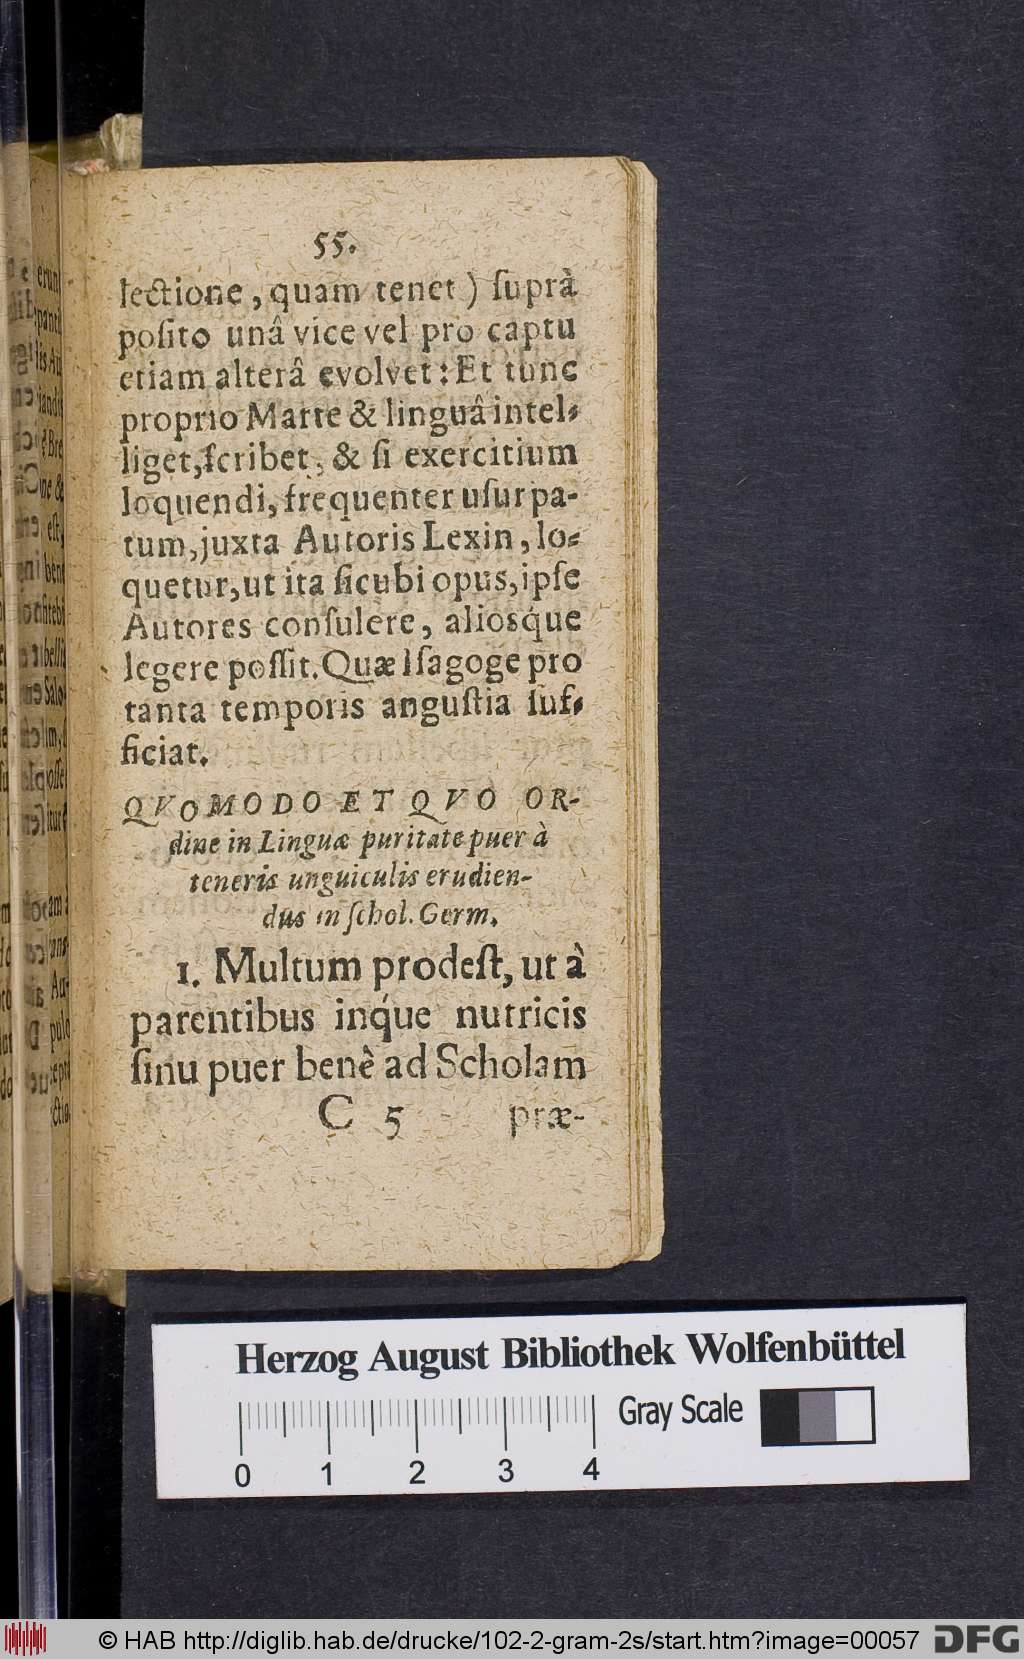 55.
lectione, quam tenet) ſuprà
poſito unâ vice vel pro captu
etiam alterâ evolvet: Et tunc
proprio Marte & linguâ intel-
liget, ſcribet, & ſi exercitium
loquendi, frequenter uſurpa-
tum, juxta Autoris Lexin, lo-
quetur, ut ita ſicubi opus, ipſe
Autores conſulere, aliosq́ue
legere poſſit. Quæ Iſagoge pro
tanta temporis anguſtia ſuf-
ficiat.
QVOMODO ET QVO OR-
dine in Linguæ puritate puer à
teneris unguiculis erudien-
dus in ſchol. Germ.
1. Multum prodeſt, ut à
parentibus inq́ue nutricis
ſinu puer benè ad Scholam
C 5 præ-
Herzog August Bibliothek Wolfenbüttel
Gray Scale
0 1 2 3 4
© HAB http://diglib.hab.de/drucke/102-2-gram-2s/start.htm?image=00057
DFG